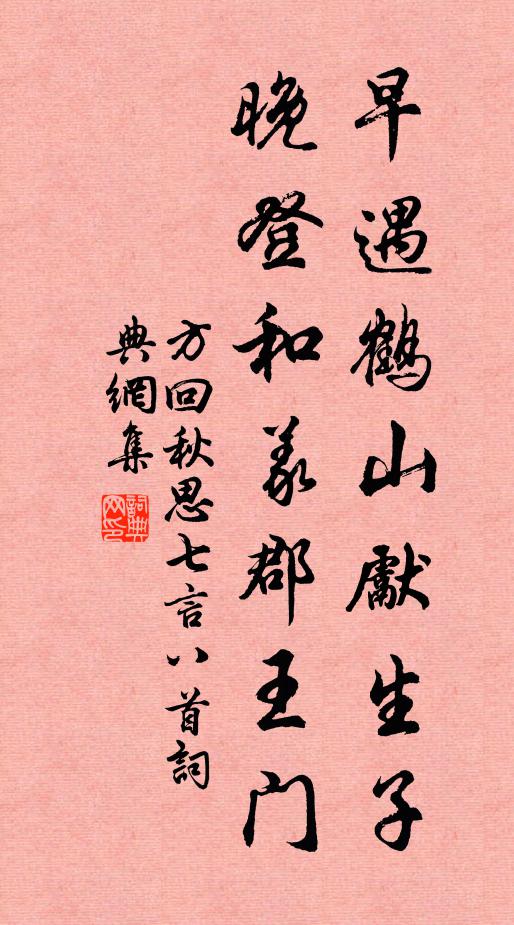 早遇鹤山獻生子
晚登和义郡王门
方回秋思七言八首詞
典網集
詞典网印